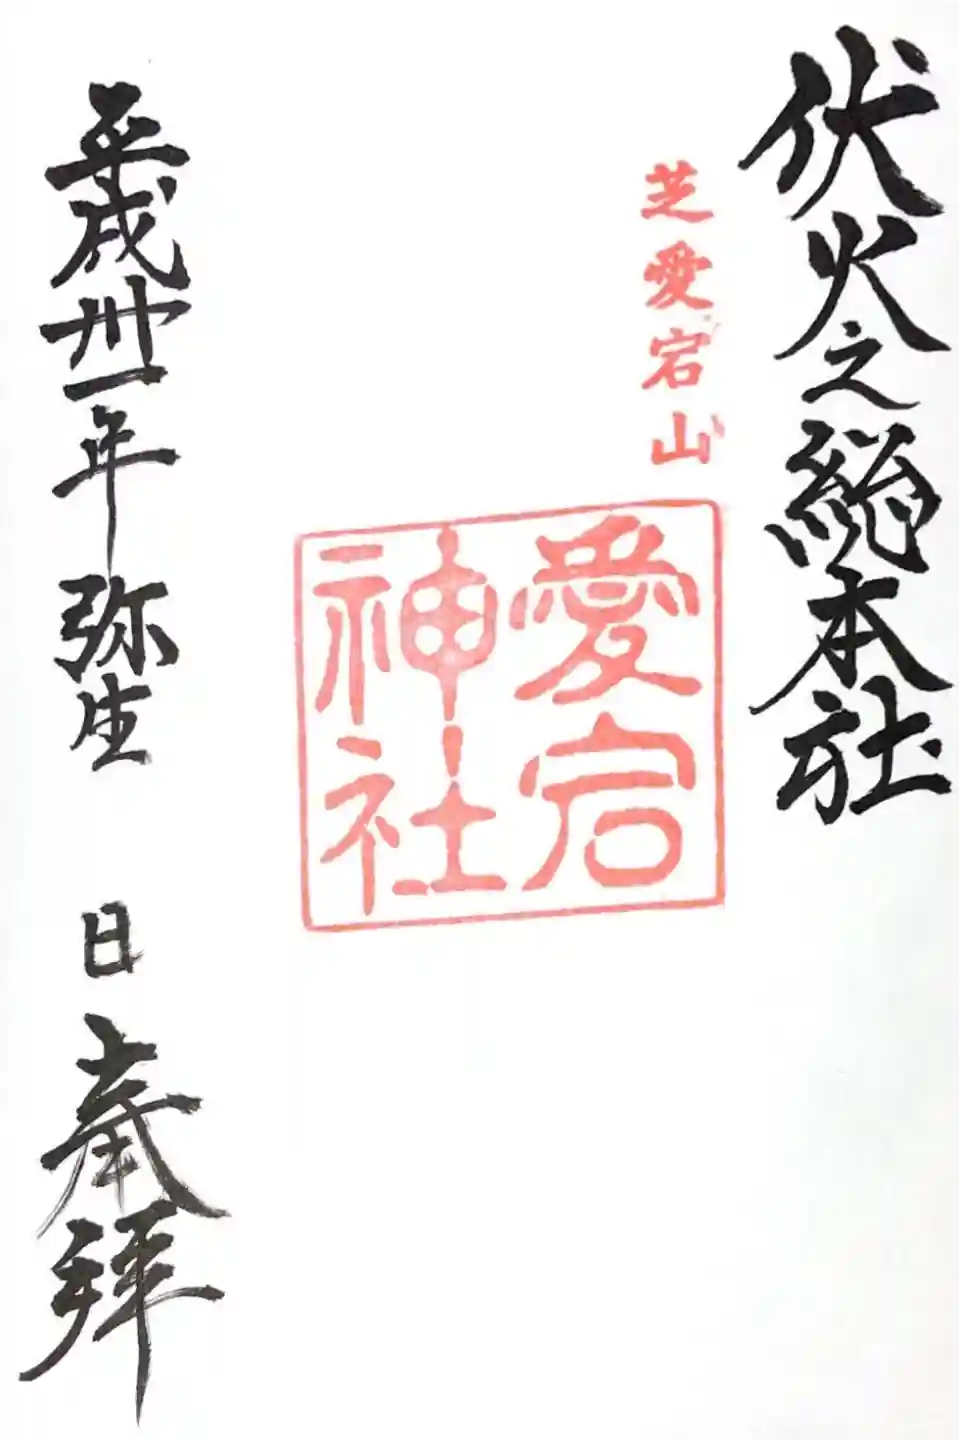 伏火之総本社
芝愛宕山
愛宕
神社
平成丗一年 弥生 日 奉拝